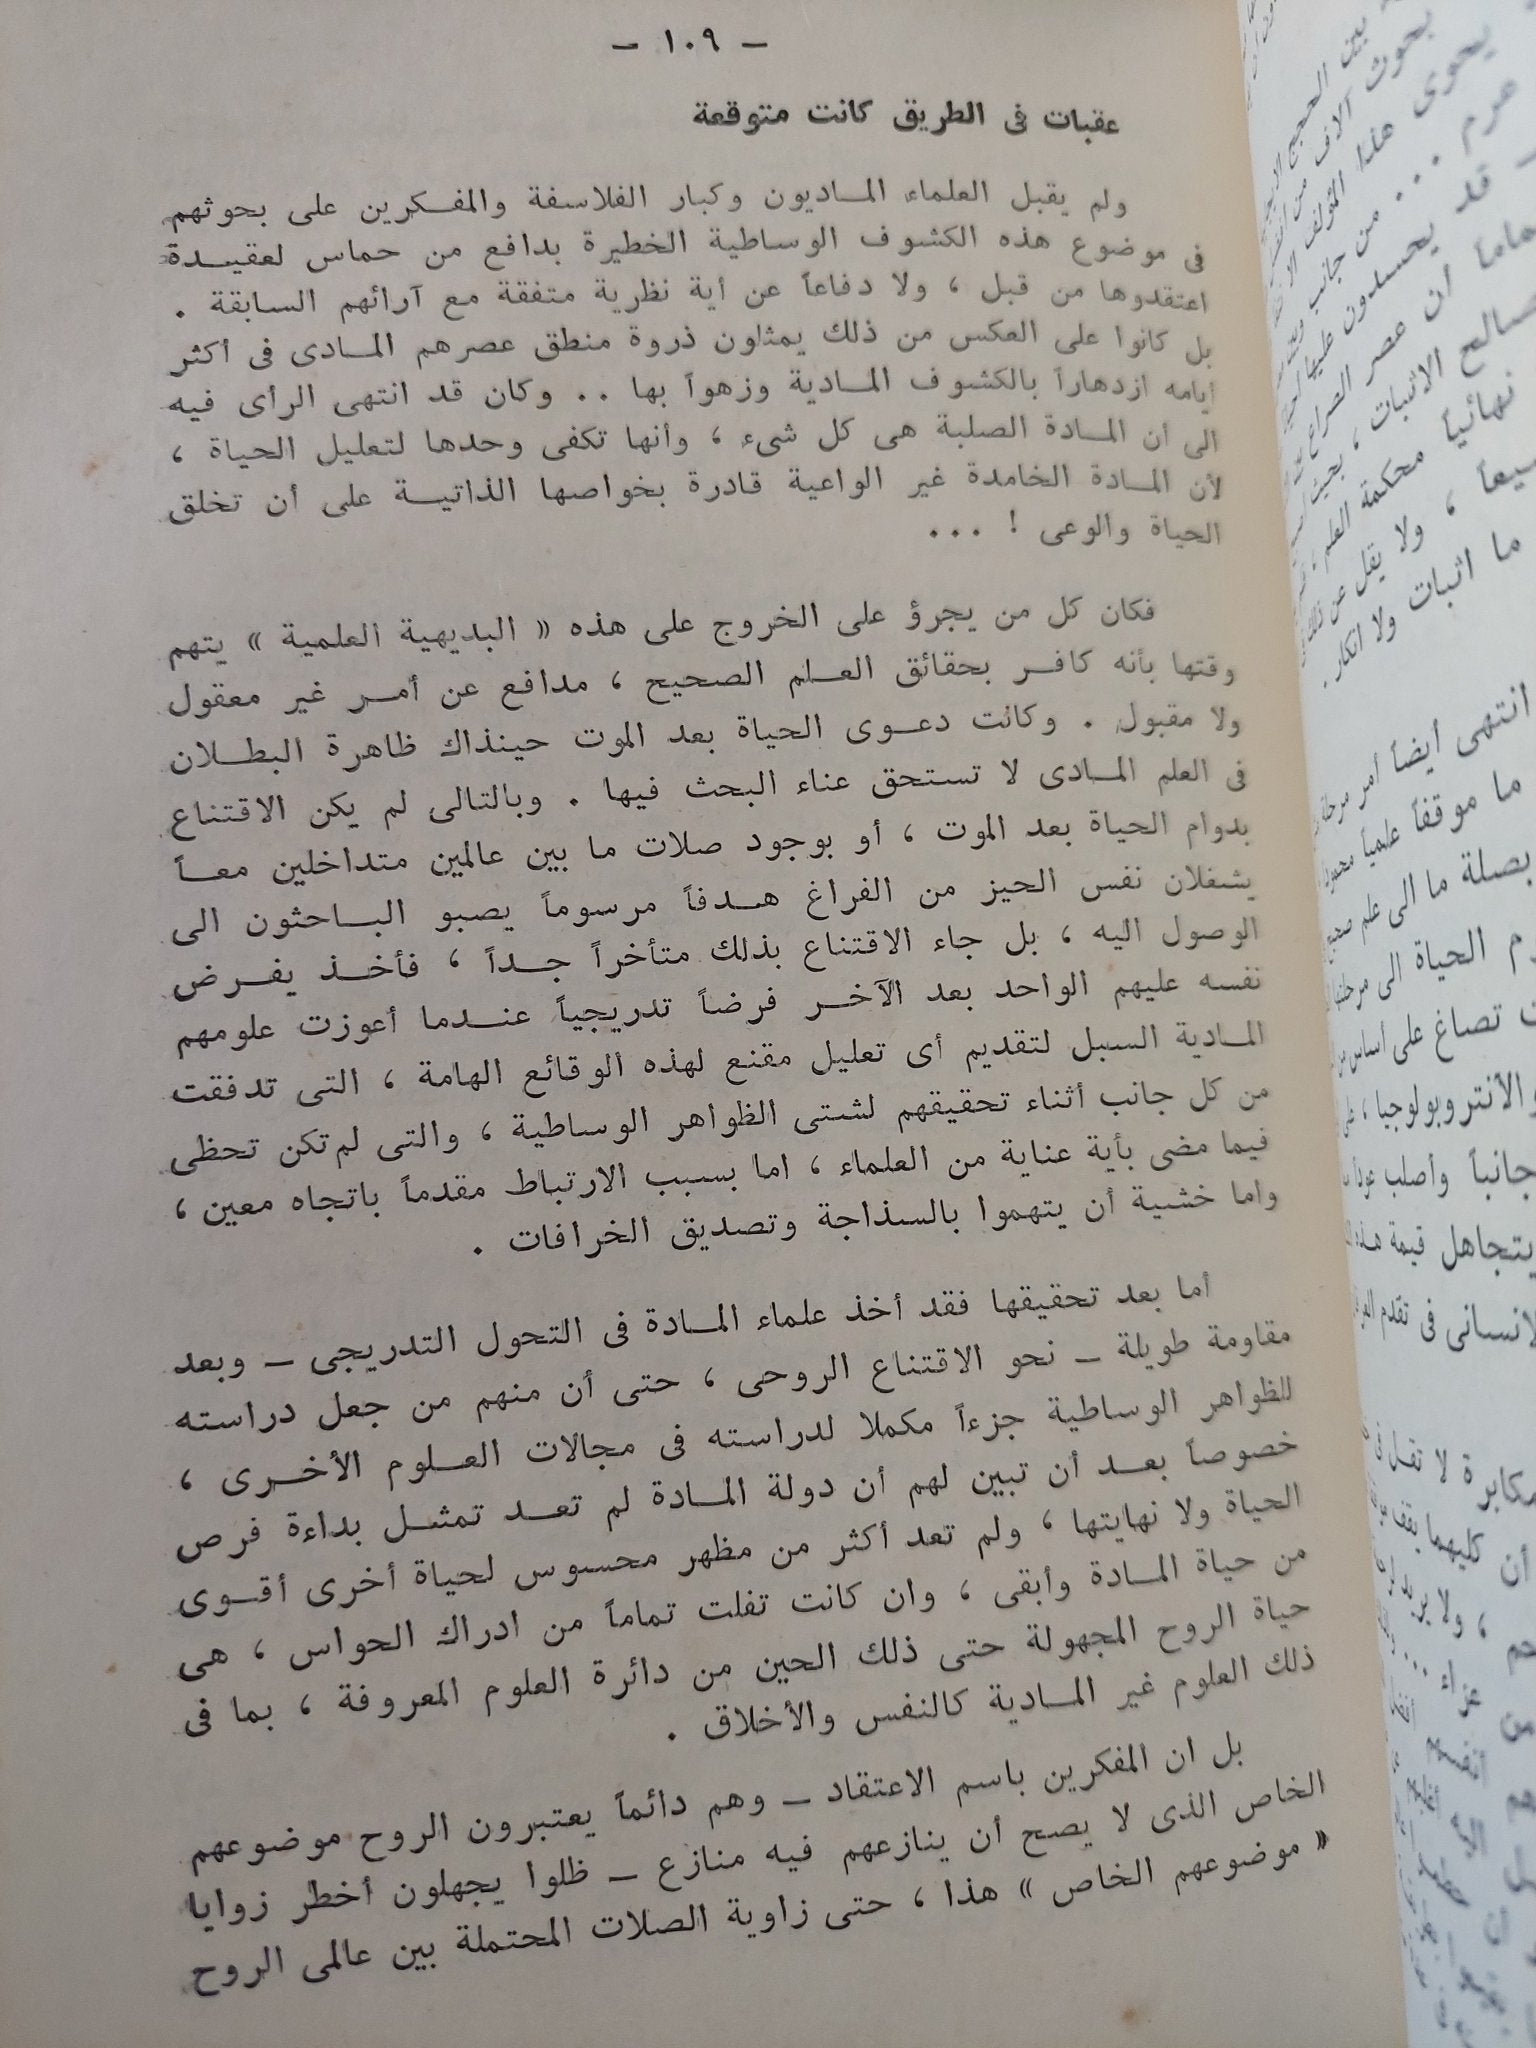 – ١٠٩ –
عقبات فى الطريق كانت متوقعة
ولم يقبل العلماء المــاديون وكبار الفلاسفة والمفــكرين على بحوثهم
فى موضوع هذه الكشوف الوساطية الخطيرة بدافع من حماس لعقيــدة
اعتقدوها من قبل ، ولا دفاعاً عن أية نظرية متفقة مع آرائهم السابقة .
بل كانوا على العكس من ذلك يمثلون ذروة منطق عصرهم المــادى فى أكثر
أيامه ازدهاراً بالكشوف المــادية وزهواً بها .. وكان قد انتهى الرأى فيه
الى أن المــادة الصلبة هى كل شىء ، وأنها تكفى وحدها لتعليل الحياة ،
لأن المــادة الخامدة غير الواعية قادرة بخواصها الذاتيــة على أن تخلق
الحياة والوعى ! ...
فكان كل من يجرؤ على الخروج على هذه « البديهية العلمية » يتهم
وقتها بأنه كافــر بحقائق العــلم الصحيح ، مدافع عن أمــر غير معقول
ولا مقبول . وكانت دعــوى الحياة بعد الموت حينذاك ظاهرة البطــلان
فى العلم المــادى لا تستحق عناء البحث فيها . وبالتالى لم يكن الاقتناع
بدوام الحياة بعد الموت ، أو بوجود صلات ما بين عالمين متداخلين معــاً
يشغلان نفس الحيز من الفراغ هــدفاً مرسوماً يصبو البــاحثون الى
الوصول اليه ، بل جاء الاقتناع بذلك متأخراً جــداً ، فأخــذ يفــرض
نفسه عليهم الواحد بعد الآخــر فرضاً تدريجياً عنــدما أعوزت علومهم
المــادية السبل لتقديم أى تعليل مقنع لهذه الوقائع الهامة ، التى تدفقت
من كل جانب أثناء تحقيقهم لشتى الظواهر الوساطية ، والتى لم تكن تحظى
فيما مضى بأية عناية من العلماء ، اما بسبب الارتباط مقدماً باتجاه معين ،
واما خشية أن يتهموا بالسذاجة وتصديق الخرافات .
أما بعد تحقيقها فقد أخذ علماء المــادة فى التحول التدريجى – وبعد
مقاومة طويلة – نحو الاقتناع الروحى ، حتى أن منهم من جعل دراسته
للظواهر الوساطية جزءاً مكملا لدراسته فى مجالات العــلوم الأخــرى ،
خصوصاً بعــد أن تبين لهم أن دولة المــادة لم تعــد تمثــل بداءة فرص
الحياة ولا نهايتها ، ولم تعد أكثر من مظهر محسوس لحياة أخرى أقــوى
من حياة المــادة وأبقى ، وان كانت تفلت تماماً من ادراك الحواس ، هى
حياة الروح المجهولة حتى ذلك الحين من دائرة العلوم المعروفة ، بما فى
ذلك العلوم غير المــادية كالنفس والأخلاق .
بل ان المفكرين باسم الاعتقاد – وهم دائماً يعتبرون الروح موضوعهم
الخاص الذى لا يصح أن ينازعهم فيه منازع – ظلوا يجهلون أخطر زوايا
« موضوعهم الخاص » هذا ، حتى زاوية الصلات المحتملة بين عالمى الروح